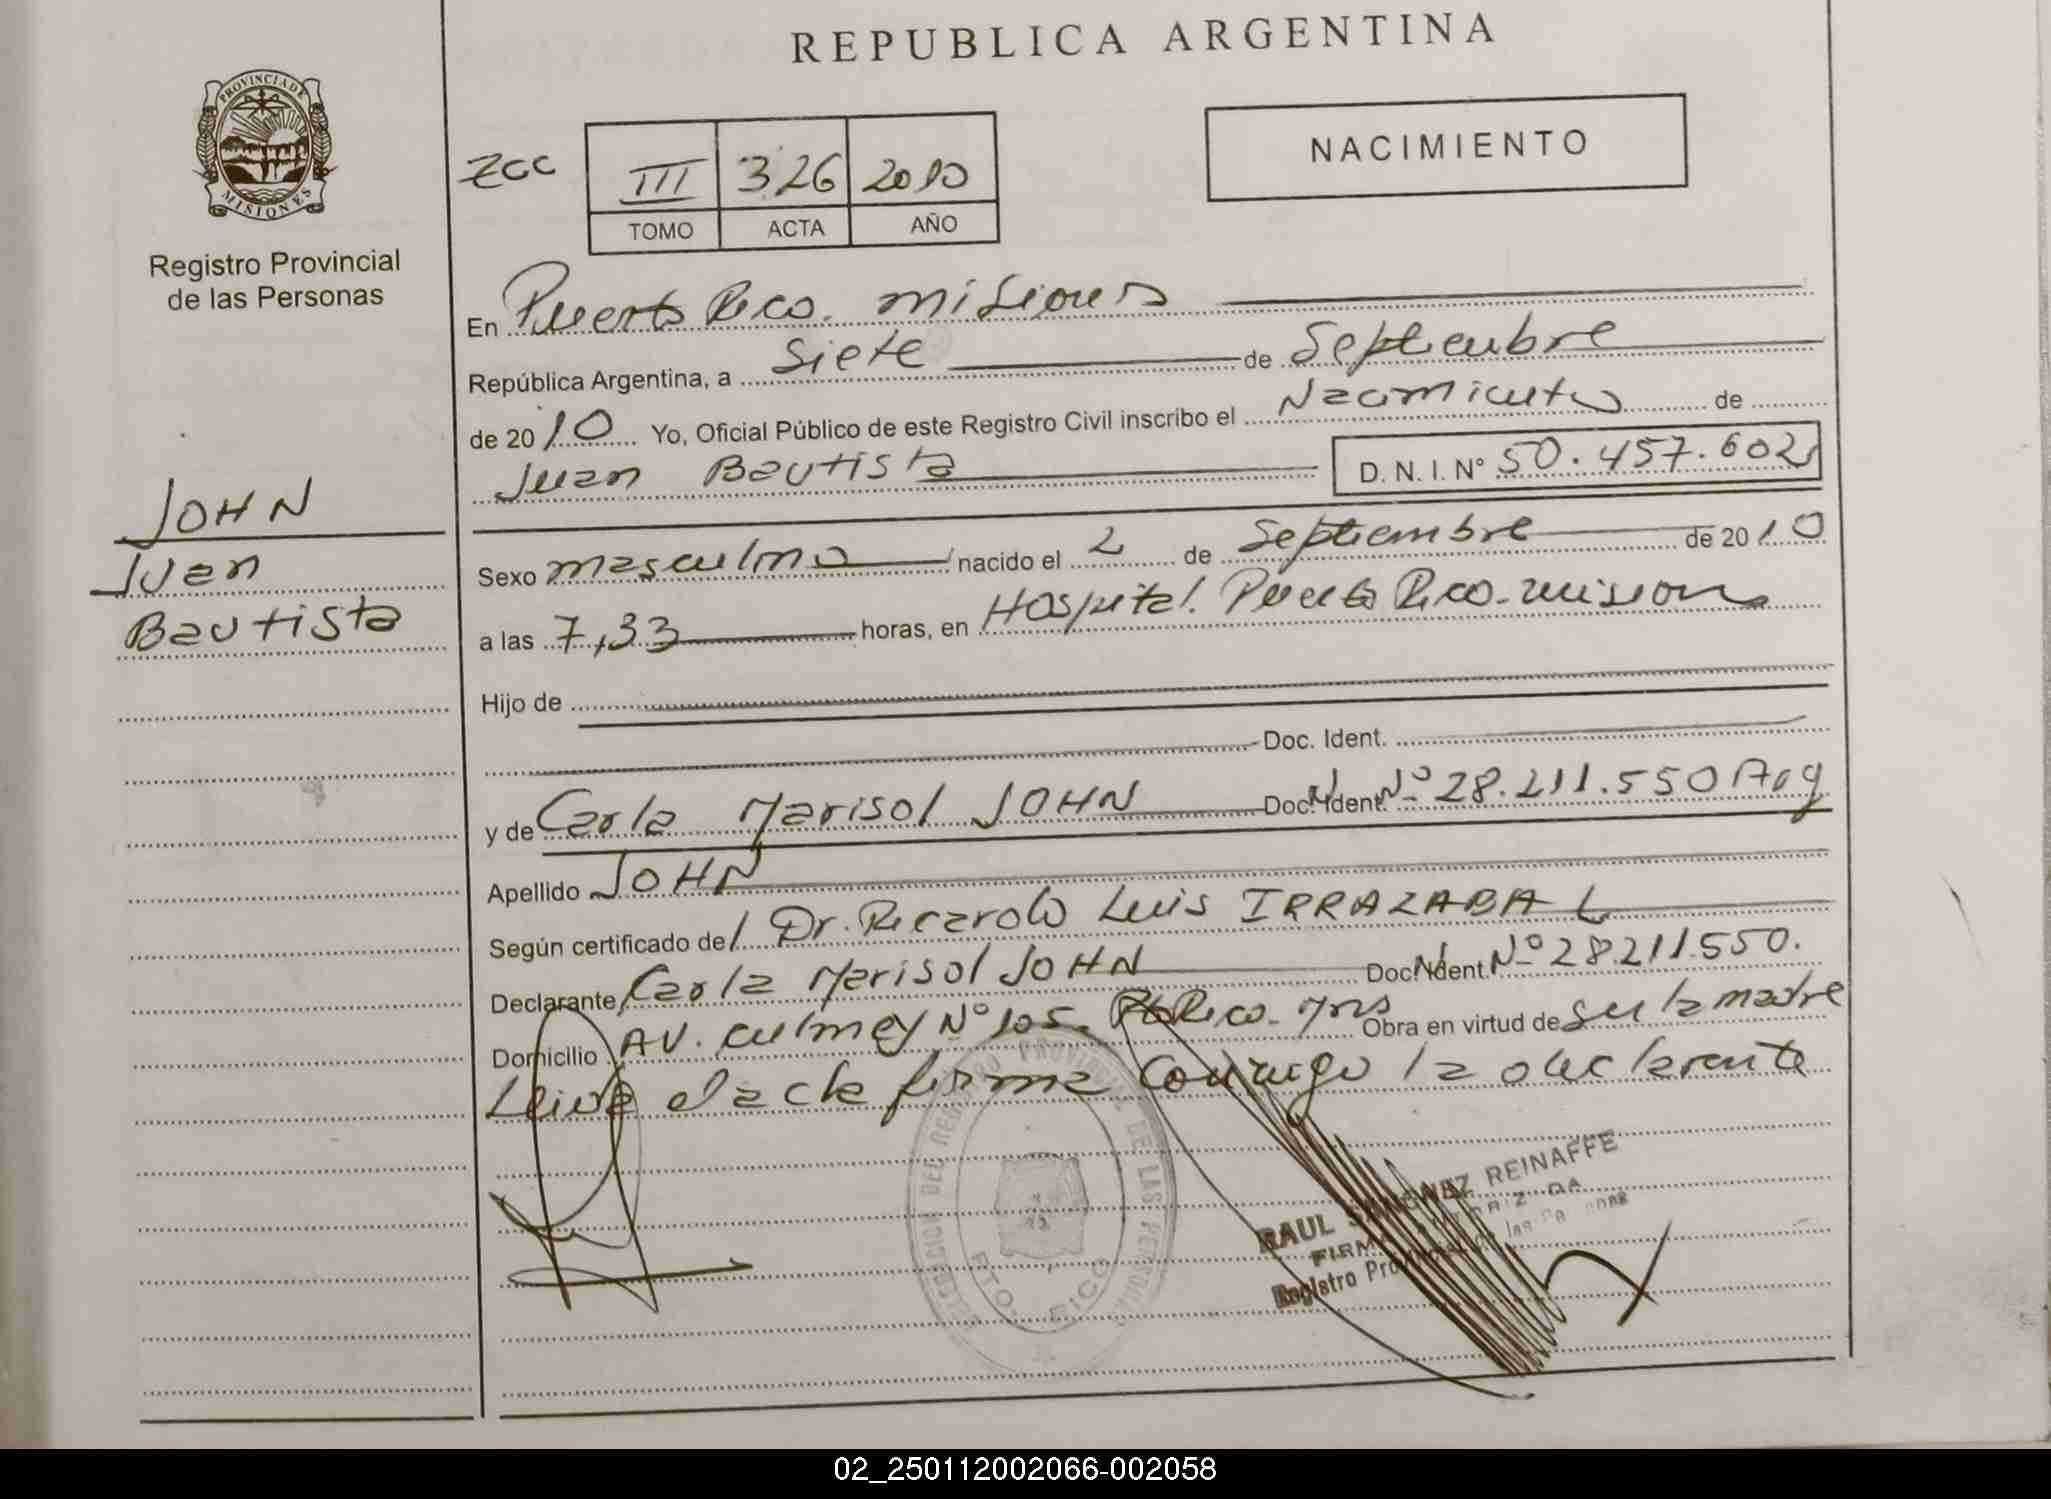 REPUBLICA ARGENTINA
PROVINCIA DE
MISIONES
Registro Provincial
de las Personas
NACIMIENTO
III 326 2010
TOMO ACTA AÑO
En Puerto Rico. misiones
República Argentina, a siete de Septiembre
de 2010 Yo, Oficial Público de este Registro Civil inscribo el Nacimiento de
Juan Bautista D. N. I. N° 50.457.602
JOHN
Juan
Bautista
Sexo masculino nacido el 2 de Septiembre de 2010
a las 7,33 horas, en Hospital. Puerto Rico-misiones
Hijo de
Doc. Ident.
y de Carla Marisol JOHN Doc. Ident. Nº 28.211.550 Arg
Apellido JOHN
Según certificado del Dr. Ricardo Luis IRRAZABAL
Declarante Carla Marisol JOHN Doc. Ident. Nº 28.211.550.
Domicilio AV. culmey Nº 105. Pto Rico-Mns Obra en virtud de ser la madre
Leida el acta firma conmigo la declarante
DELEGACION DEL REGISTRO PROVINCIAL DE LAS PERSONAS
PTO. RICO
RAUL REINAFFE
FIRMA AUTORIZADA
Registro Provincial de las Personas
02_250112002066-002058